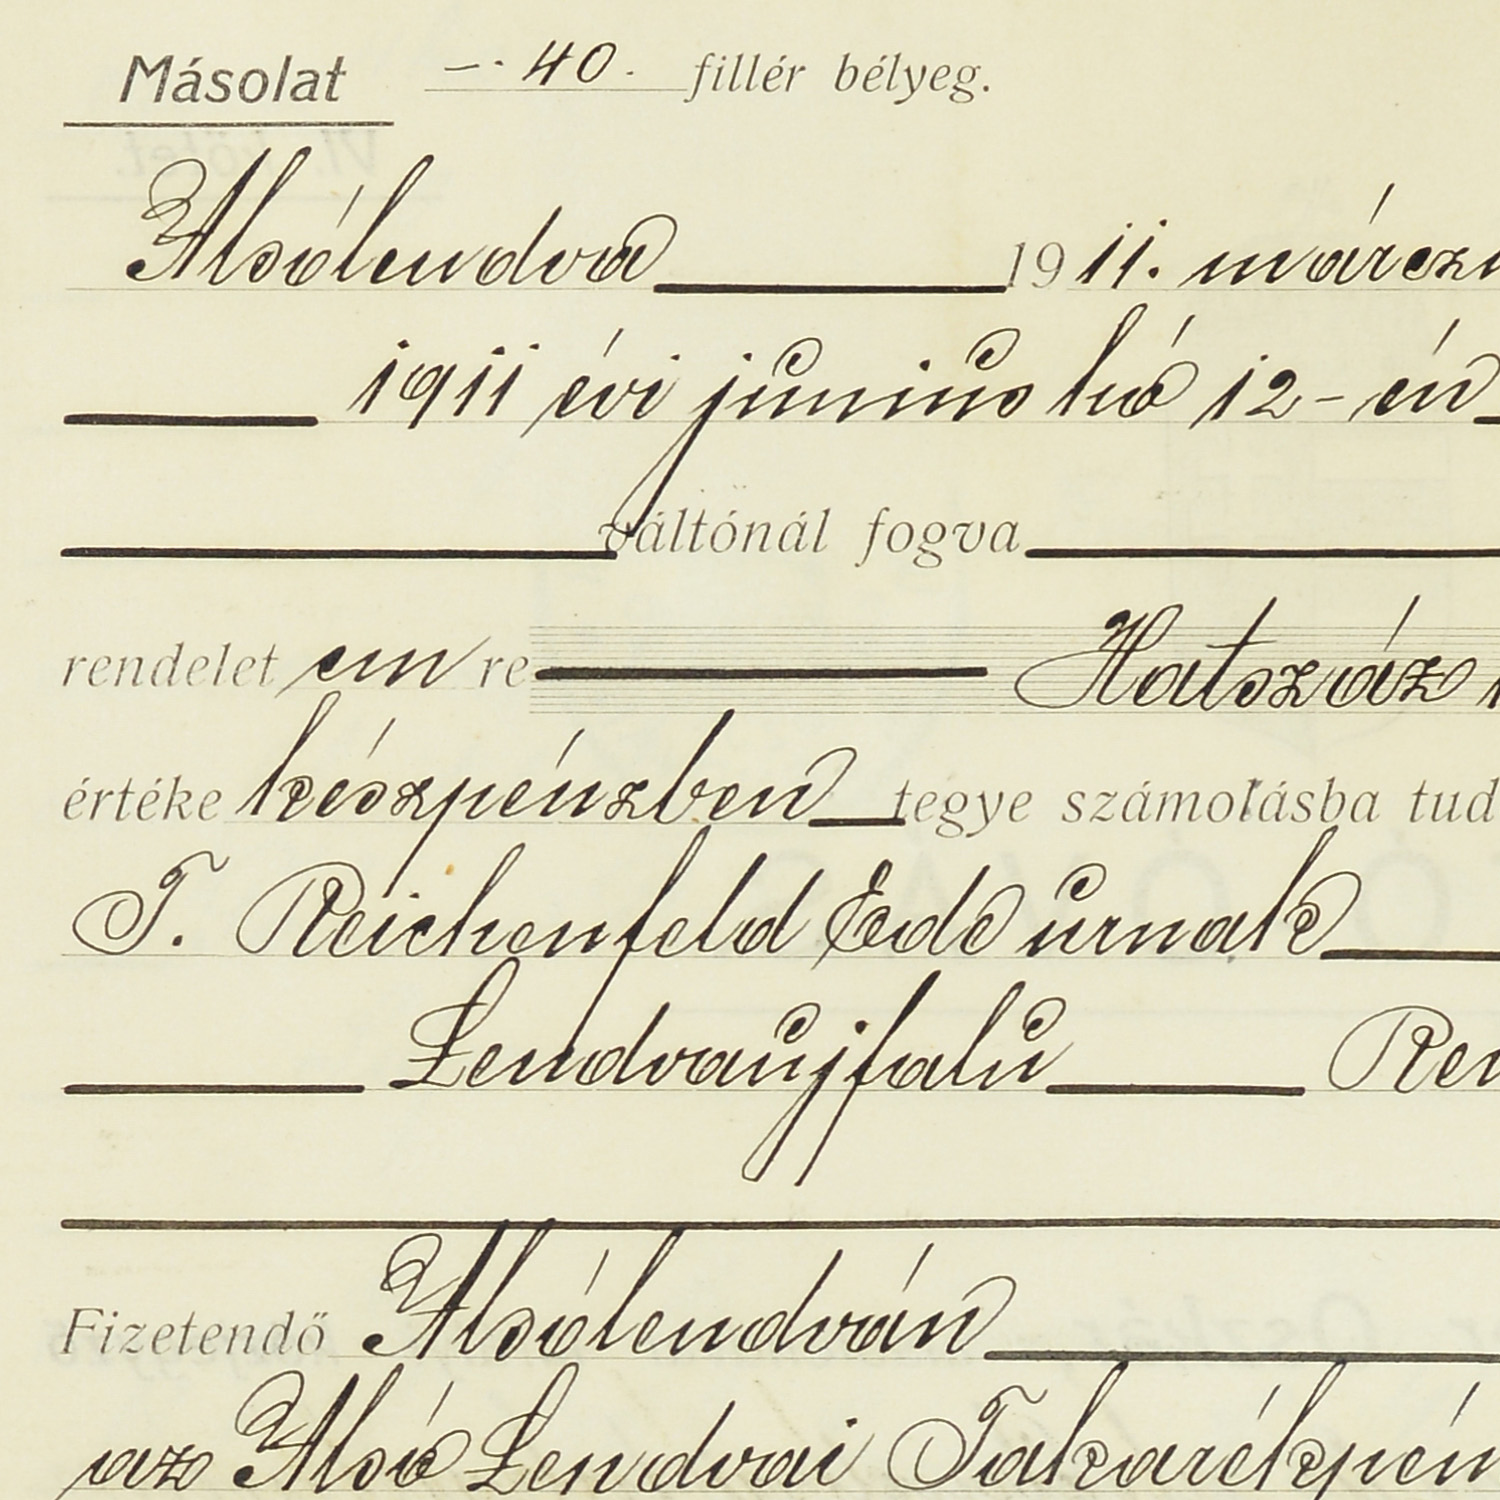 Másolat —.40. fillér bélyeg.
Alsólendva 1911. márcz
1911 évi június hó 12-én
váltónál fogva
rendelet em re Hatszáz
értéke készpénzben tegye számolásba tud
T. Reichenfeld Ede úrnak
Lendvaujfalu Ren
Fizetendő Alsólendván
az Alsó Lendvai Takarékpén